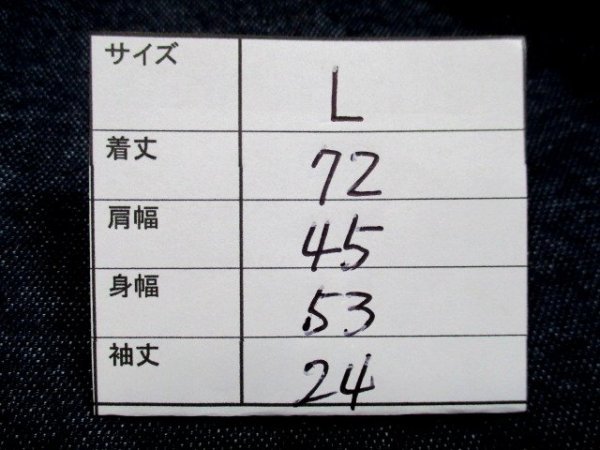 サイズ L
着丈 72
肩幅 45
身幅 53
袖丈 24